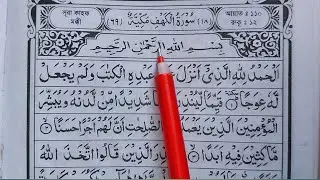 সূরা কাহফ
মক্কী
(١٨) سُوْرَةُ الْكَهْفِ مَكِّيَّةٌ (٦٩)
আয়াত : ১১০
রুকু : ১২
بِسْمِ اللهِ الرَّحْمٰنِ الرَّحِيْمِ
اَلْحَمْدُ لِلّٰهِ الَّذِيْٓ اَنْزَلَ عَبْدِهِ الْكِتٰبَ وَلَمْ يَجْعَلْ
لَّهٗ عِوَجًا ۝١ قَيِّمًا لِّيُنْذِرَ شَدِيْدًا مِّنْ لَّدُنْهُ وَيُبَشِّرَ
الْمُؤْمِنِيْنَ الَّذِيْنَ يَعْمَلُوْنَ الصّٰلِحٰتِ اَنَّ لَهُمْ اَجْرًا حَسَنًا ۝٢
مَّاكِثِيْنَ فِيْهِ اَبَدًا ۝٣ الَّذِيْنَ قَالُوا اتَّخَذَ اللهُ